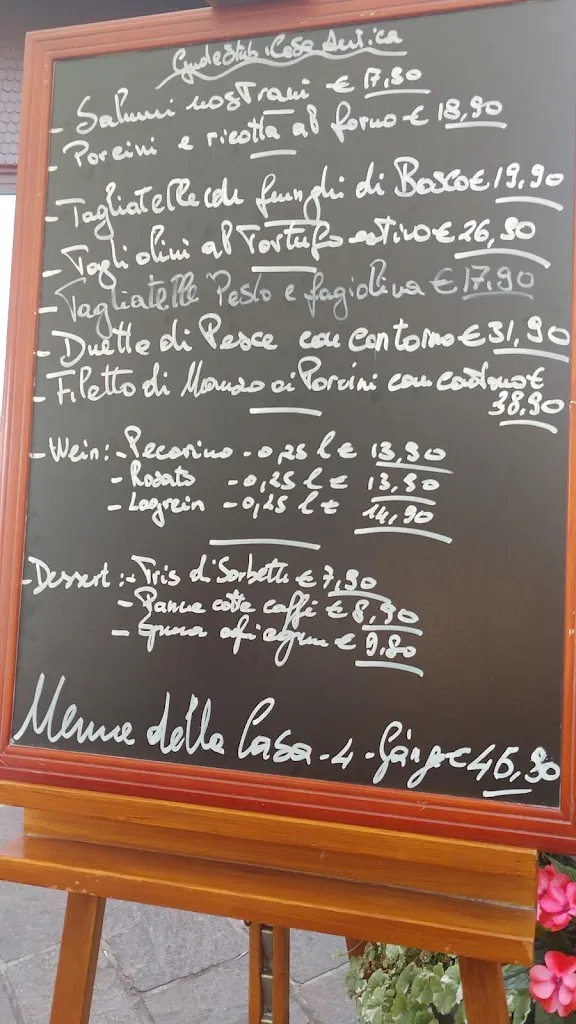 Casa Antica
- Salumi nostrani € 17,90
- Porcini e ricotta al forno € 18,90
- Tagliatelle con funghi di Bosco € 19,90
- Tagliolini al Tartufo estivo € 26,90
- Tagliatelle Pesto e fagiolina € 17,90
- Duetto di Pesce con contorno € 31,90
- Filetto di Manzo ai Porcini con contorno €
38,90
- Wein: - Pecorino - 0,25 l € 13,90
- Rosato - 0,25 l € 13,90
- Lagrein - 0,25 l € 14,90
- Dessert: - Tris di Sorbetti € 7,90
- Panna cotta caffè € 8,90
- € 9,80
Menue della Casa - 4 - Gänge € 46,90